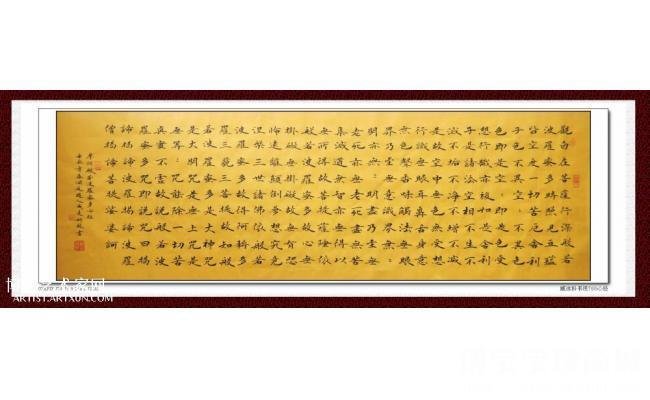 觀自在菩薩行深般若
波羅蜜多時照見五蘊
皆空度一切苦厄舍利
子色不異空空不異色
色即是空空即是色受
想行識亦復如是舍利
子是諸法空相不生不
滅不垢不淨不增不減
是故空中無色無受想
行識無眼耳鼻舌身意
無色聲香味觸法無眼
界乃至無意識界無無
明亦無無明盡乃至無
老死亦無老死盡無苦
集滅道無智亦無得以
無所得故菩提薩埵依
般若波羅蜜多故心無
掛礙無掛礙故無有恐
怖遠離顛倒夢想究竟
涅槃三世諸佛依般若
波羅蜜多故得阿耨多
羅三藐三菩提故知般
若波羅蜜多是大神咒
是大明咒是無上咒是
無等等咒能除一切苦
真實不虛故說般若波
羅蜜多咒即說咒曰揭
諦揭諦波羅揭諦波羅
僧揭諦菩提薩婆訶
摩訶般若波羅蜜多心經
ARTIST.ARTXUN.COM